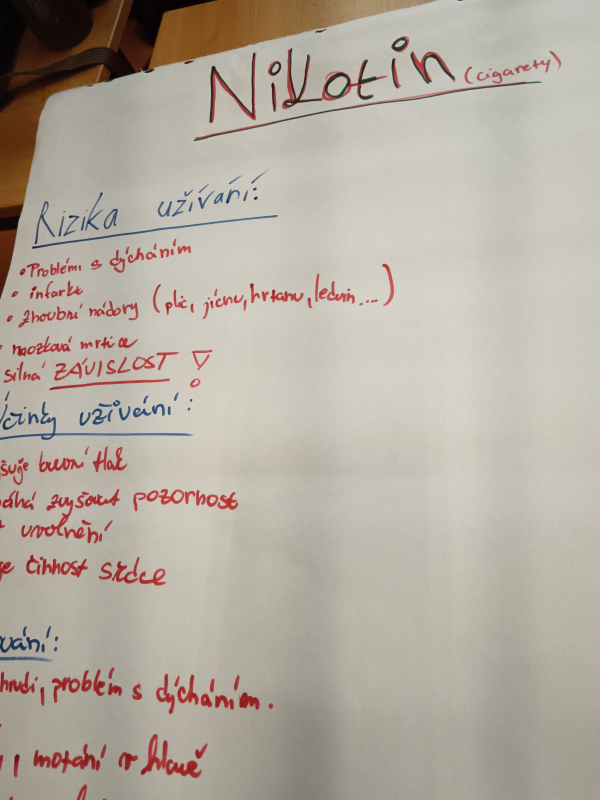 Nikotin (cigarety)
Rizika užívání:
• Problémi s dýcháním
• infarkt
• zhoubní nádory (plic, jícnu, hrtanu, ledvin...)
• mozková mrtice
silná ZÁVISLOST !
účinky užívání:
šuje krevní tlak
áhá zvyšovat pozornost
t uvolnění
je činnost srdce
vání:
hrudi, problém s dýcháním.
, motání v hlavě